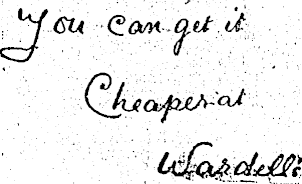 You can get it
Cheaper at
Wardell's